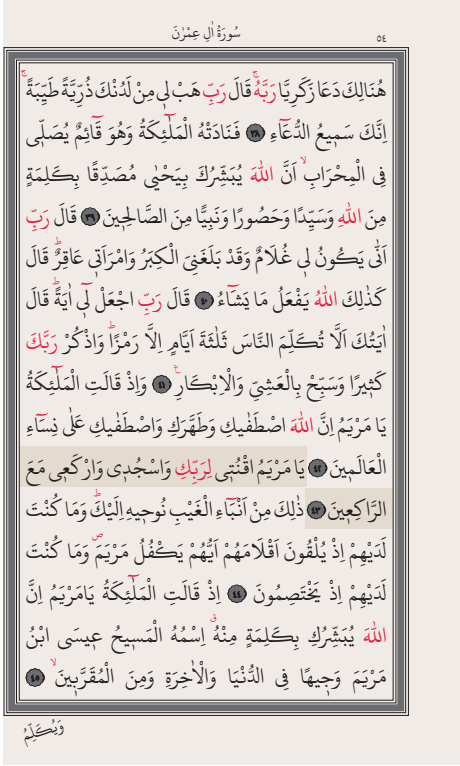 سُورَةُ اٰلِ عِمْرٰنَ
٥٤
هُنَالِكَ دَعَا زَكَرِيَّا رَبَّهُۚ قَالَ رَبِّ هَبْ لِى مِنْ لَدُنْكَ ذُرِّيَّةً طَيِّبَةًۚ
اِنَّكَ سَمِيعُ الدُّعَٓاءِ ﴿٣٨﴾ فَنَادَتْهُ الْمَلٰٓئِكَةُ وَهُوَ قَٓائِمٌ يُصَلّٖى
فِى الْمِحْرَابِۙ اَنَّ اللّٰهَ يُبَشِّرُكَ بِيَحْيٰى مُصَدِّقًا بِكَلِمَةٍ
مِنَ اللّٰهِ وَسَيِّدًا وَحَصُورًا وَنَبِيًّا مِنَ الصَّالِحٖينَ ﴿٣٩﴾ قَالَ رَبِّ
اَنّٰى يَكُونُ لٖى غُلَامٌ وَقَدْ بَلَغَنِىَ الْكِبَرُ وَامْرَاَتٖى عَاقِرٌؕ قَالَ
كَذٰلِكَ اللّٰهُ يَفْعَلُ مَا يَشَٓاءُ ﴿٤٠﴾ قَالَ رَبِّ اجْعَلْ لٖٓى اٰيَةًؕ قَالَ
اٰيَتُكَ اَلَّا تُكَلِّمَ النَّاسَ ثَلٰثَةَ اَيَّامٍ اِلَّا رَمْزًاؕ وَاذْكُرْ رَبَّكَ
كَثٖيرًا وَسَبِّحْ بِالْعَشِىِّ وَالْاِبْكَارِ۟ ﴿٤١﴾ وَاِذْ قَالَتِ الْمَلٰٓئِكَةُ
يَا مَرْيَمُ اِنَّ اللّٰهَ اصْطَفٰيكِ وَطَهَّرَكِ وَاصْطَفٰيكِ عَلٰى نِسَٓاءِ
الْعَالَمٖينَ ﴿٤٢﴾ يَا مَرْيَمُ اقْنُتٖى لِرَبِّكِ وَاسْجُدٖى وَارْكَعٖى مَعَ
الرَّاكِعٖينَ ﴿٤٣﴾ ذٰلِكَ مِنْ اَنْبَٓاءِ الْغَيْبِ نُوحٖيهِ اِلَيْكَؕ وَمَا كُنْتَ
لَدَيْهِمْ اِذْ يُلْقُونَ اَقْلَامَهُمْ اَيُّهُمْ يَكْفُلُ مَرْيَمَࣕ وَمَا كُنْتَ
لَدَيْهِمْ اِذْ يَخْتَصِمُونَ ﴿٤٤﴾ اِذْ قَالَتِ الْمَلٰٓئِكَةُ يَامَرْيَمُ اِنَّ
اللّٰهَ يُبَشِّرُكِ بِكَلِمَةٍ مِنْهُࣗ اِسْمُهُ الْمَسٖيحُ عٖيسَى ابْنُ
مَرْيَمَ وَجٖيهًا فِى الدُّنْيَا وَالْاٰخِرَةِ وَمِنَ الْمُقَرَّبٖينَۙ ﴿٤٥﴾
وَيُكَلِّمُ